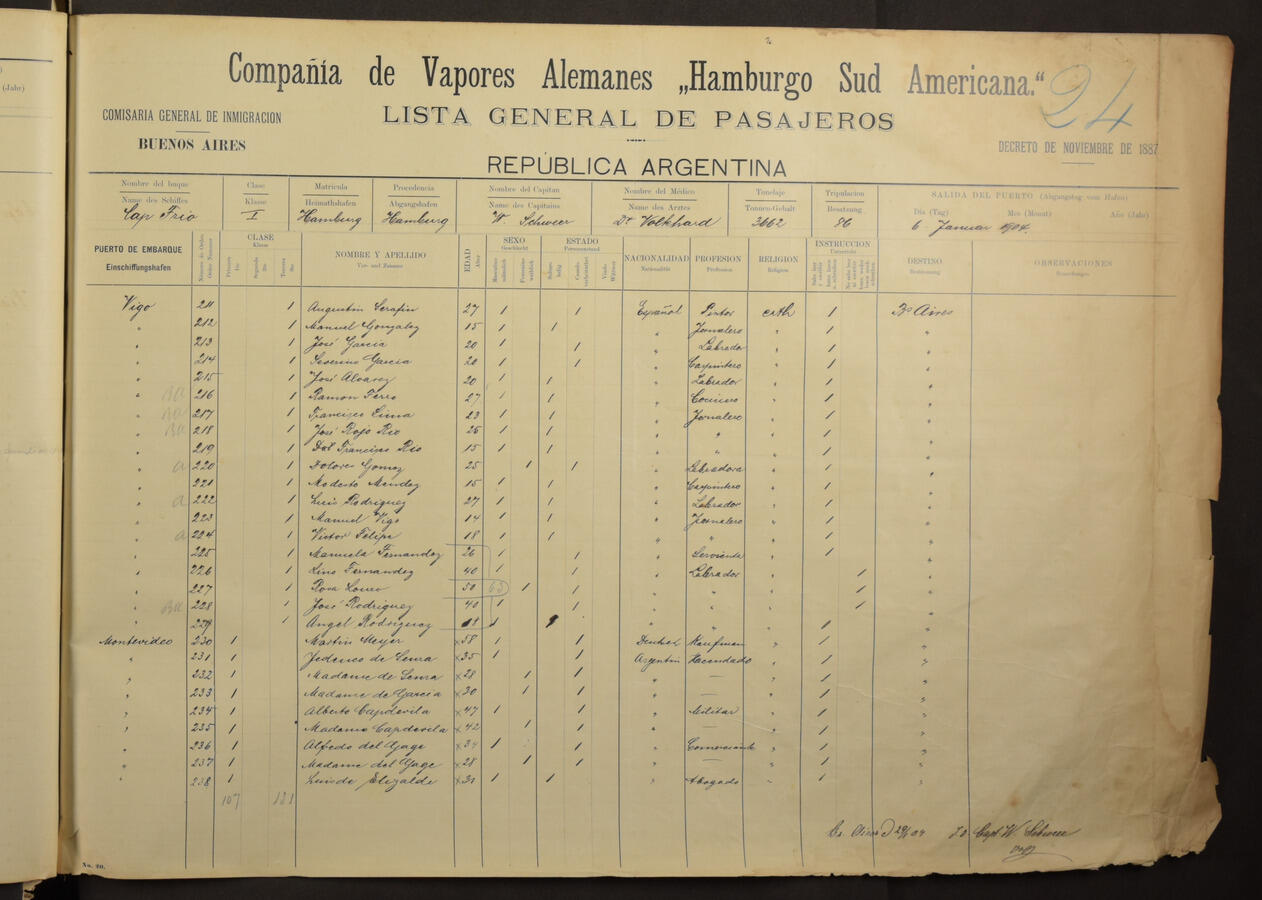 (Jahr)
Compañía de Vapores Alemanes „Hamburgo Sud Americana.“
24
COMISARIA GENERAL DE INMIGRACION
LISTA GENERAL DE PASAJEROS
BUENOS AIRES
DECRETO DE NOVIEMBRE DE 1887
REPÚBLICA ARGENTINA
Nombre del buque Clase Matricula Procedencia Nombre del Capitan Nombre del Médico Tonelaje Tripulacion SALIDA DEL PUERTO (Abgangstag vom Hafen)
Name des Schiffes Klasse Heimathshafen Abgangshafen Name des Capitains Name des Arztes Tonnen-Gehalt Besatzung Dia (Tag) Mes (Monat) Año (Jahr)
Cap Frio I Hamburg Hamburg W Schweer Dr Volkhard 3662 86 6 Januar 1904
PUERTO DE EMBARQUE CLASE NOMBRE Y APELLIDO EDAD SEXO ESTADO NACIONALIDAD PROFESION RELIGION INSTRUCCION DESTINO OBSERVACIONES
Einschiffungshafen Klasse Vor- und Zuname Alter Geschlecht Personenstand Nationalität Profession Religion Bestimmung Bemerkungen
Vigo 211 1 Augustin Serafin 27 1 1 Español Pintor cath 1 Bs Aires
" 212 1 Manuel Gonzalez 15 1 1 " Jornalero " 1 "
" 213 1 José Garcia 20 1 1 " Labrador " 1 "
" 214 1 Severino Garcia 20 1 1 " Carpintero " 1 "
" 215 1 José Alvarez 20 1 1 " Labrador " 1 "
" 216 1 Ramon Ferro 27 1 1 " Cocinero " 1 "
" 217 1 Francisco Lima 23 1 1 " Jornalero " 1 "
" 218 1 José Rojo Rio 26 1 1 " " " 1 "
" 219 1 Francisco Rio 15 1 1 " " " 1 "
" a 220 1 Dolores Gomez 25 1 1 " Labradora " 1 "
" 221 1 Modesto Mendez 15 1 1 " Carpintero " 1 "
" a 222 1 Luis Rodriguez 27 1 1 " Labrador " 1 "
" 223 1 Manuel Vigo 14 1 1 " Jornalero " 1 "
" a 224 1 Victor Felipe 18 1 1 " " " 1 "
" 225 1 Manuela Fernandez 26 1 1 " Servienta " 1 "
" 226 1 Lino Fernandez 40 1 1 " Labrador " 1 "
" 227 1 Rosa Louro 50 63 1 1 " " " 1 "
" 228 1 José Rodriguez 40 1 1 " " " 1 "
" 229 1 Angel Rodriguez 1 " " " 1 "
Montevideo 230 1 Martin Meyer x58 1 1 Deutsch Kaufman " 1 "
" 231 1 x35 1 1 Argentin Hacendado " 1 "
" 232 1 x28 1 1 " — " 1 "
" 233 1 Madame de Garcia x30 1 1 " — " 1 "
" 234 1 Alberto Capdevila x47 1 1 " Militar " 1 "
" 235 1 Madame Capdevila x42 1 1 " — " 1 "
" 236 1 x34 1 1 " Comerciante " 1 "
" 237 1 x28 1 1 " — " 1 "
" 238 1 Luis de Elizalde 1 1 " Abogado " 1 "
107 121
Bs. Aires 29/1 04 Capt W. Schweer
No. 20.